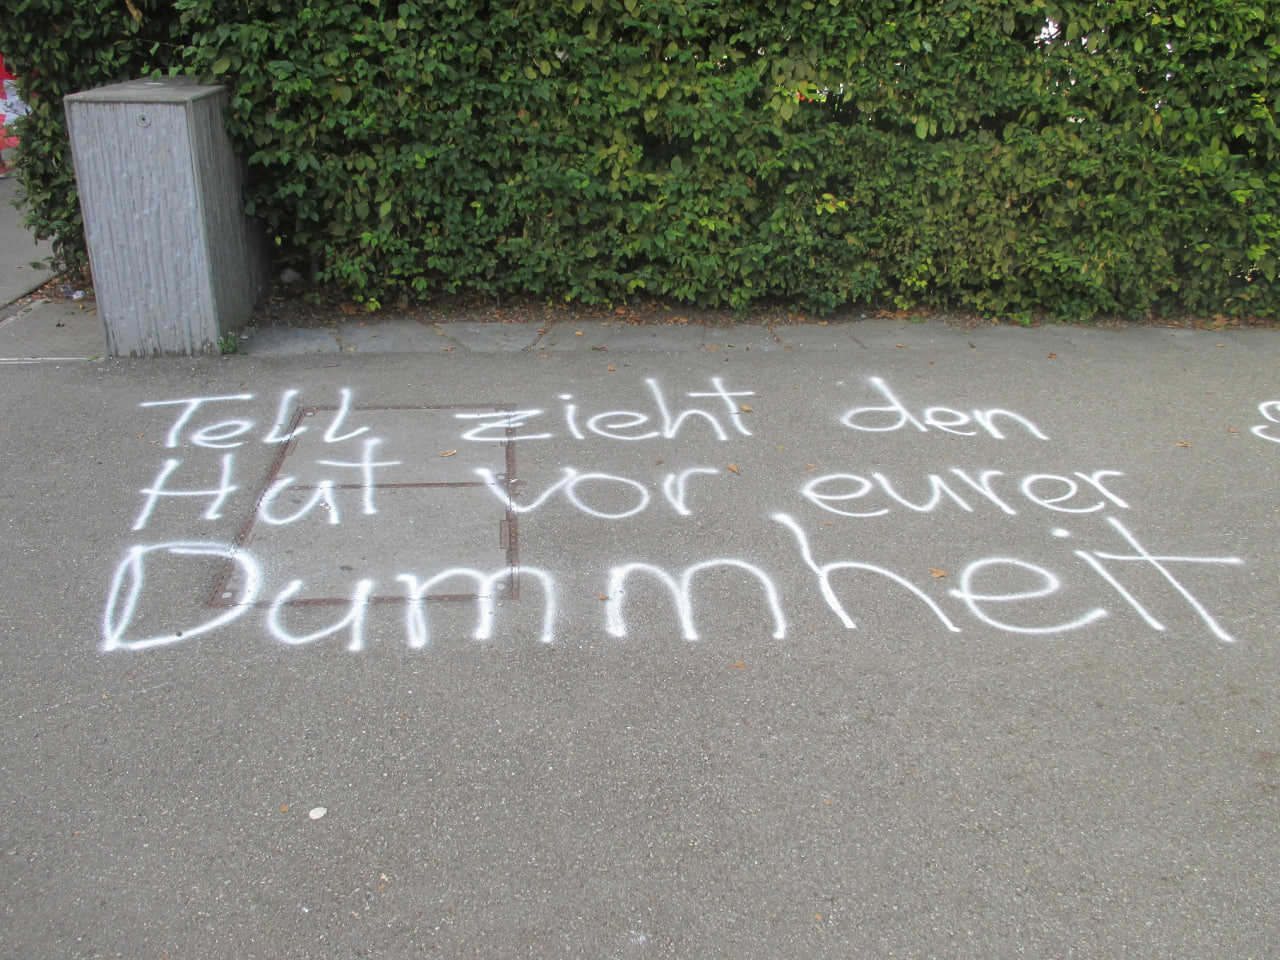 Tell zieht den
Hut vor eurer
Dummheit